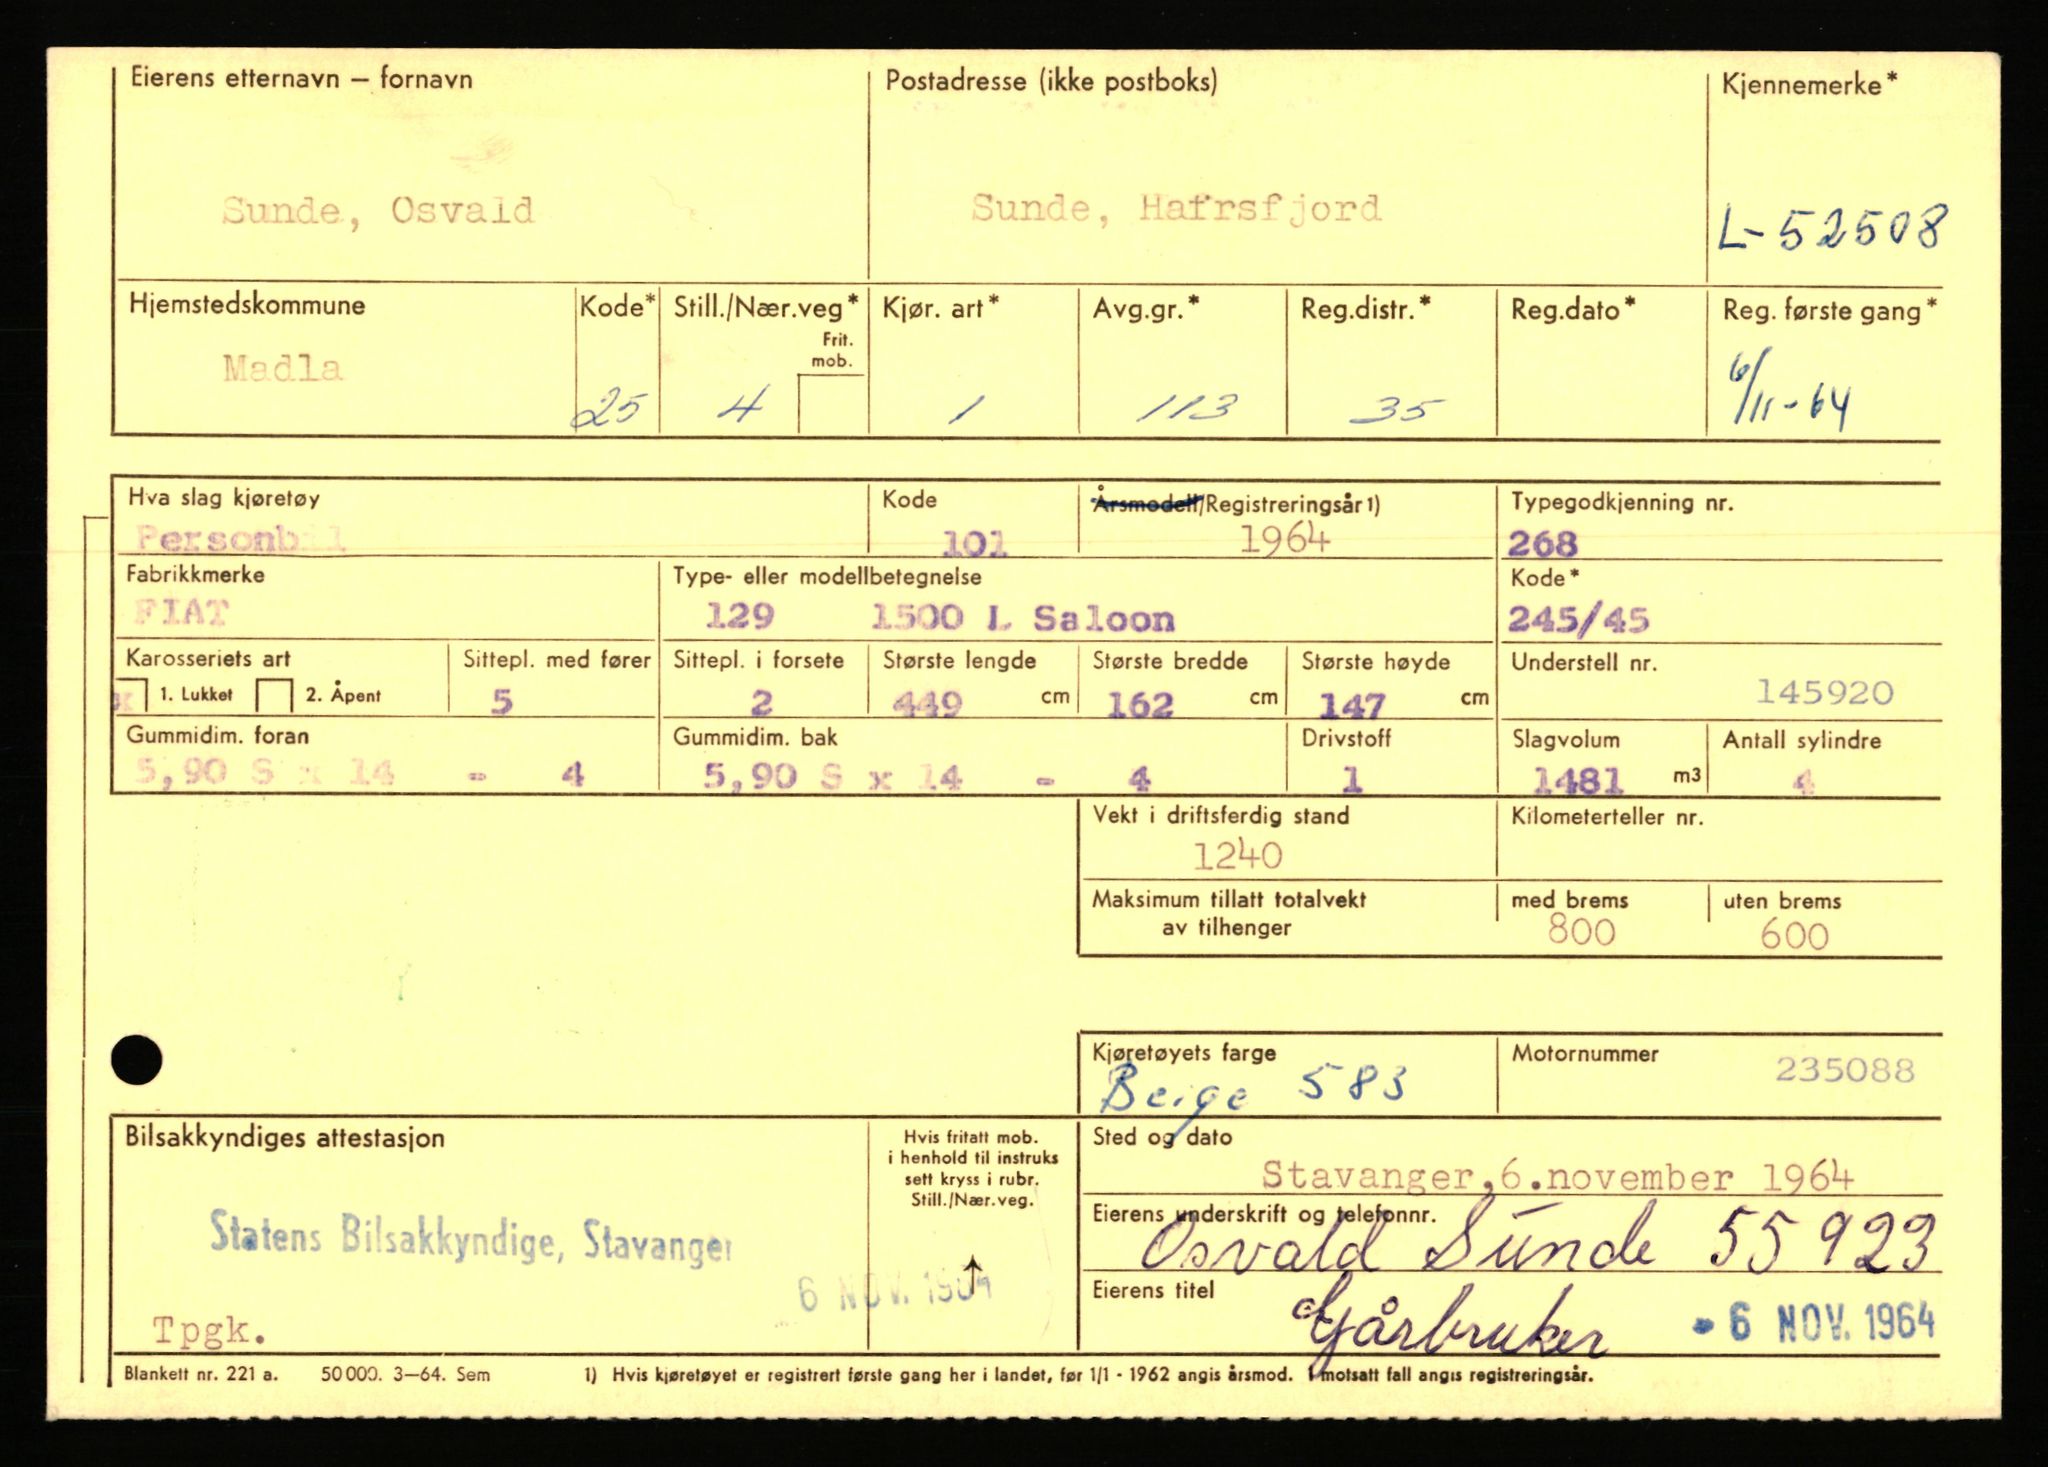 Eierens etternavn – fornavn Postadresse (ikke postboks) Kjennemerke*
Sunde, Osvald Sunde, Hafrsfjord L-52508
Hjemstedskommune Kode* Still./Nær.veg* Kjør. art* Avg.gr.* Reg.distr.* Reg.dato* Reg. første gang*
Frit.
mob.
Madla 25 4 1 113 35 6/11-64
Hva slag kjøretøy Kode Årsmodell/Registreringsår 1) Typegodkjenning nr.
Personbil 101 1964 268
Fabrikkmerke Type- eller modellbetegnelse Kode*
FIAT 129 1500 L Saloon 245/45
Karosseriets art Sittepl. med fører Sittepl. i forsete Største lengde Største bredde Største høyde Understell nr.
x 1. Lukket 2. Åpent 5 2 449 cm 162 cm 147 cm 145920
Gummidim. foran Gummidim. bak Drivstoff Slagvolum Antall sylindre
5,90 S x 14 - 4 5,90 S x 14 - 4 1 1481 m3 4
Vekt i driftsferdig stand Kilometerteller nr.
1240
Maksimum tillatt totalvekt med brems uten brems
av tilhenger 800 600
Kjøretøyets farge Motornummer
Beige 583 235088
Bilsakkyndiges attestasjon Hvis fritatt mob. Sted og dato
i henhold til instruks
sett kryss i rubr.
Still./Nær.veg.
Stavanger, 6.november 1964
Eierens underskrift og telefonnr.
Statens Bilsakkyndige, Stavanger Osvald Sunde 55923
6 NOV. 1964
Eierens titel
Gårbruker - 6 NOV. 1964
Tpgk.
Blankett nr. 221 a. 50 000. 3–64. Sem 1) Hvis kjøretøyet er registrert første gang her i landet, før 1/1 - 1962 angis årsmod. I motsatt fall angis registreringsår.